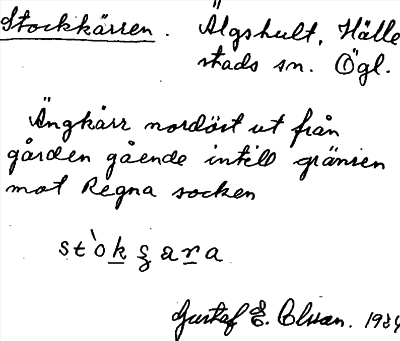 Stockkärren. Älgshult, Hälle
stads sn. Ögl.
Ängkärr nordöst ut från
gården gående intill gränsen
mot Regna socken
st`okʂara
Gustaf E. Olsson.